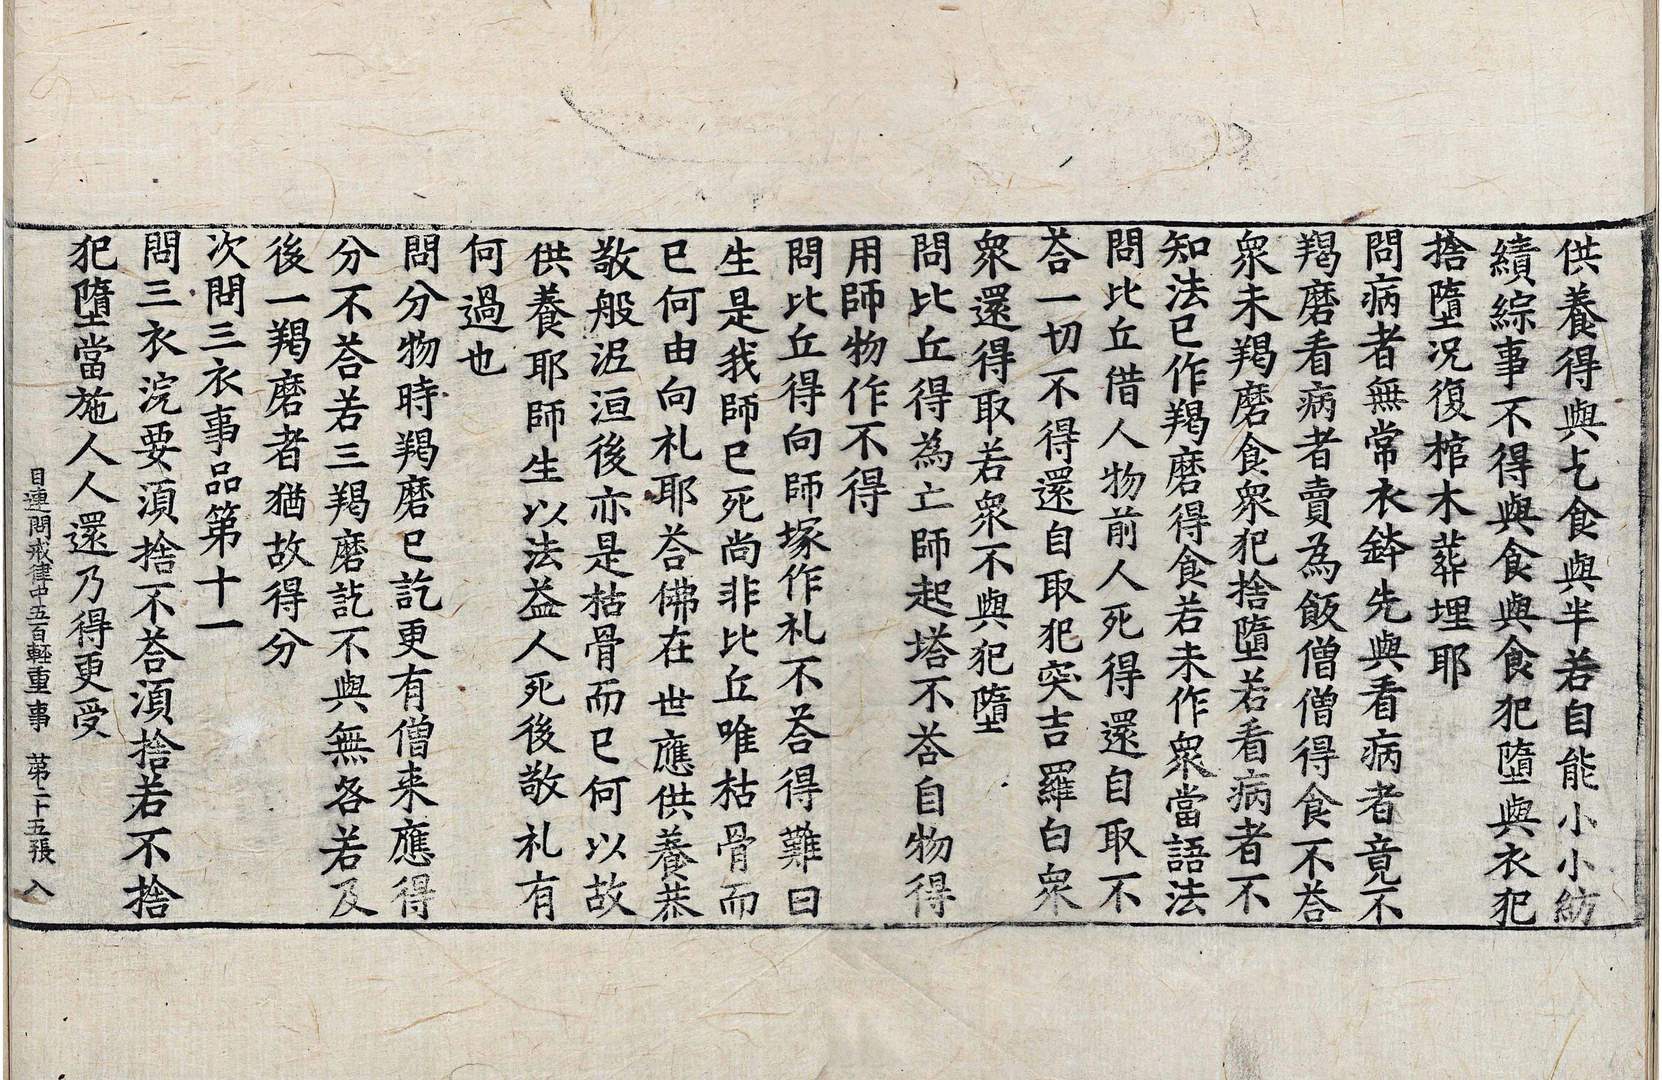 供養得與乞食與半若自能小小紡
績綜事不得與食與食犯墮與衣犯
捨墮况復棺木葬埋耶
問病者無常衣鉢先與看病者竟不
羯磨看病者賣為飯僧僧得食不荅
衆未羯磨食衆犯捨墮若看病者不
知法已作羯磨得食若未作衆當語法
問比丘借人物前人死得還自取不
荅一切不得還自取犯突吉羅白衆
衆還得取若衆不與犯墮
問比丘得為亡師起塔不荅自物得
用師物作不得
問比丘得向師塚作礼不荅得難曰
生是我師已死尚非比丘唯枯骨而
已何由向礼耶荅佛在世應供養恭
敬般泥洹後亦是枯骨而已何以故
供養耶師生以法益人死後敬礼有
何過也
問分物時羯磨已訖更有僧来應得
分不荅若三羯磨訖不與無各若及
後一羯磨者猶故得分
次問三衣事品第十一
問三衣浣要湏捨不荅湏捨若不捨
犯墮當施人人還乃得更受
目連問戒律中五百輕重事 第二十五張 入